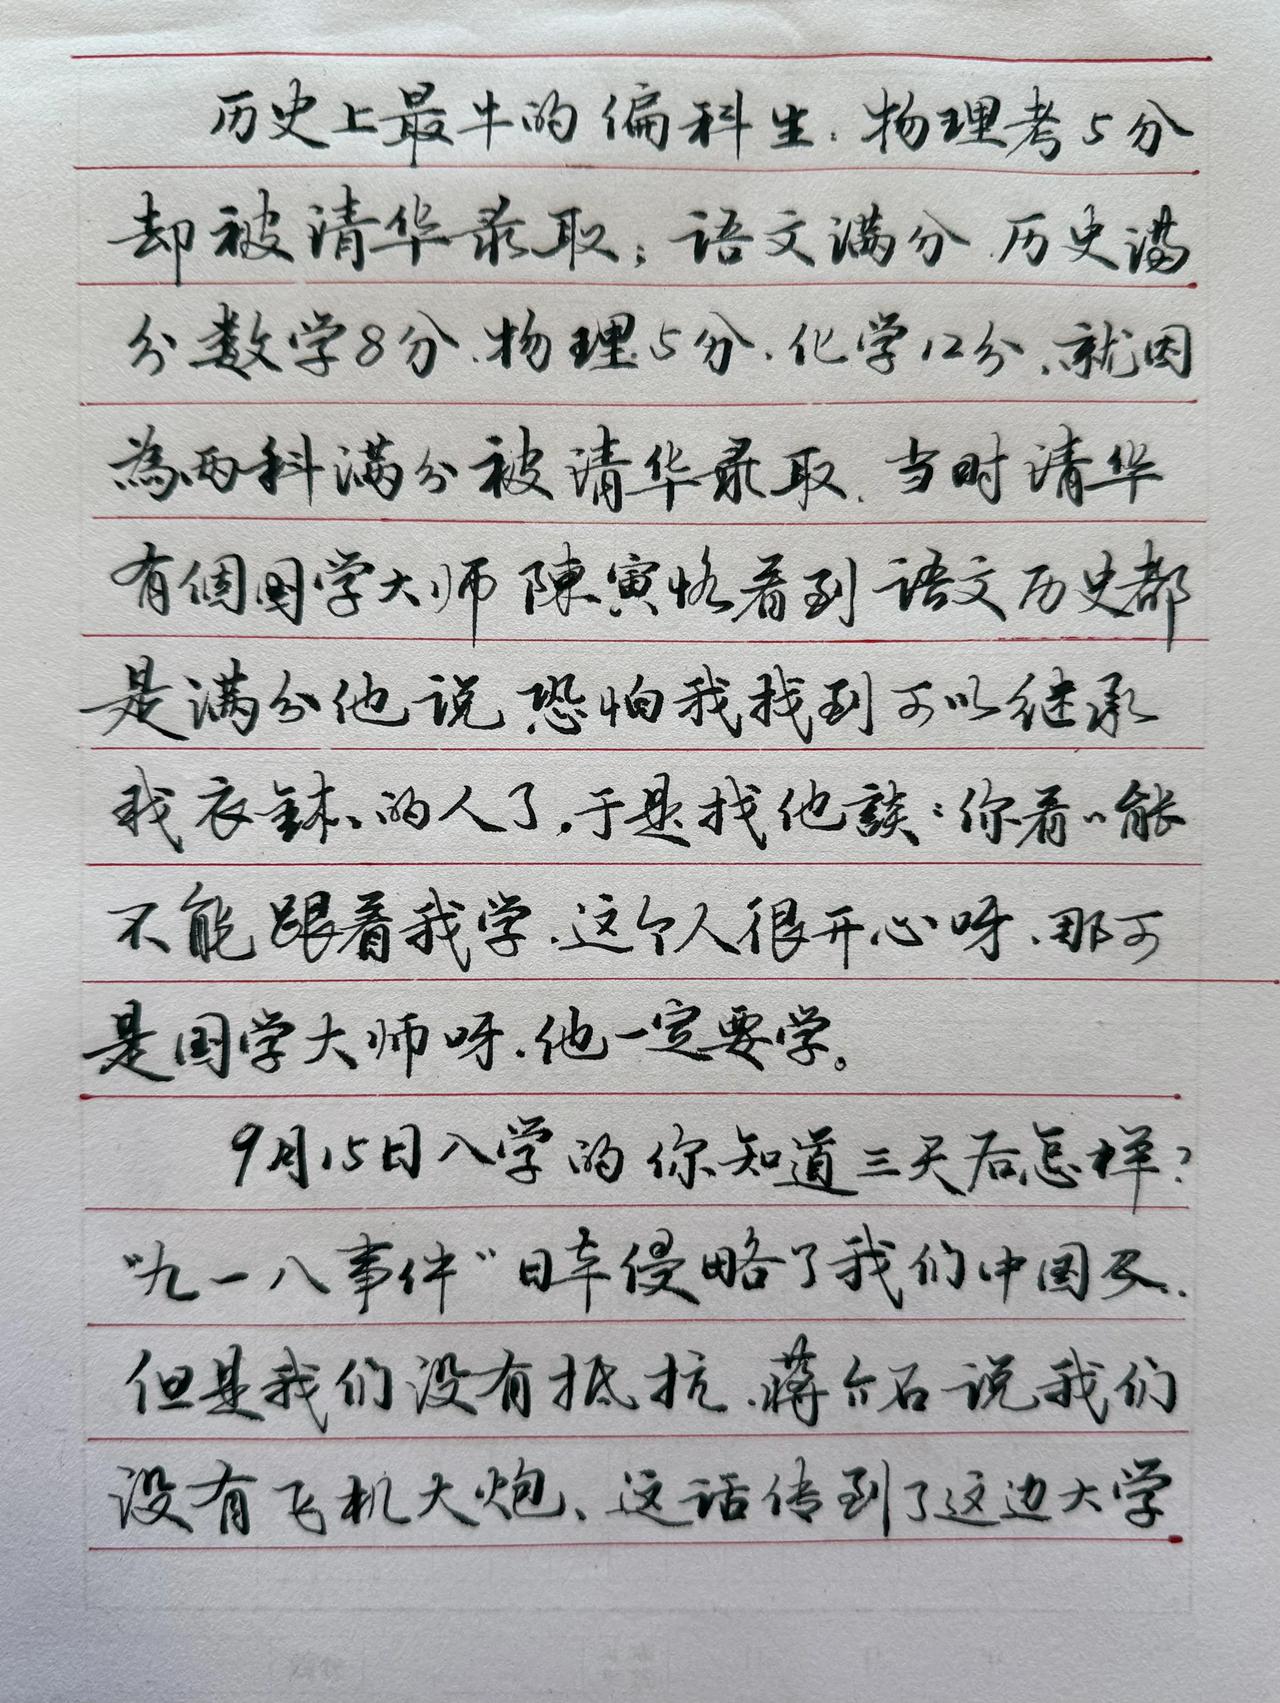 历史上最牛的偏科生.物理考5分
却被清华录取;语文满分.历史满
分数学8分.物理5分.化学12分.就因
為两科满分被清华录取.当时清华
有個国学大师陳寅恪看到语文历史都
是满分他说恐怕我找到可以继承
我衣钵的人了.于是找他談:你看能
不能跟着我学.这个人很开心呀.那可
是国学大师呀.他一定要学。
9月15日入学的你知道三天后怎样?
"九一八事件"日本侵略了我们中国
但是我们没有抵抗.蒋介石说我们
没有飞机大炮、这话传到了这边大学